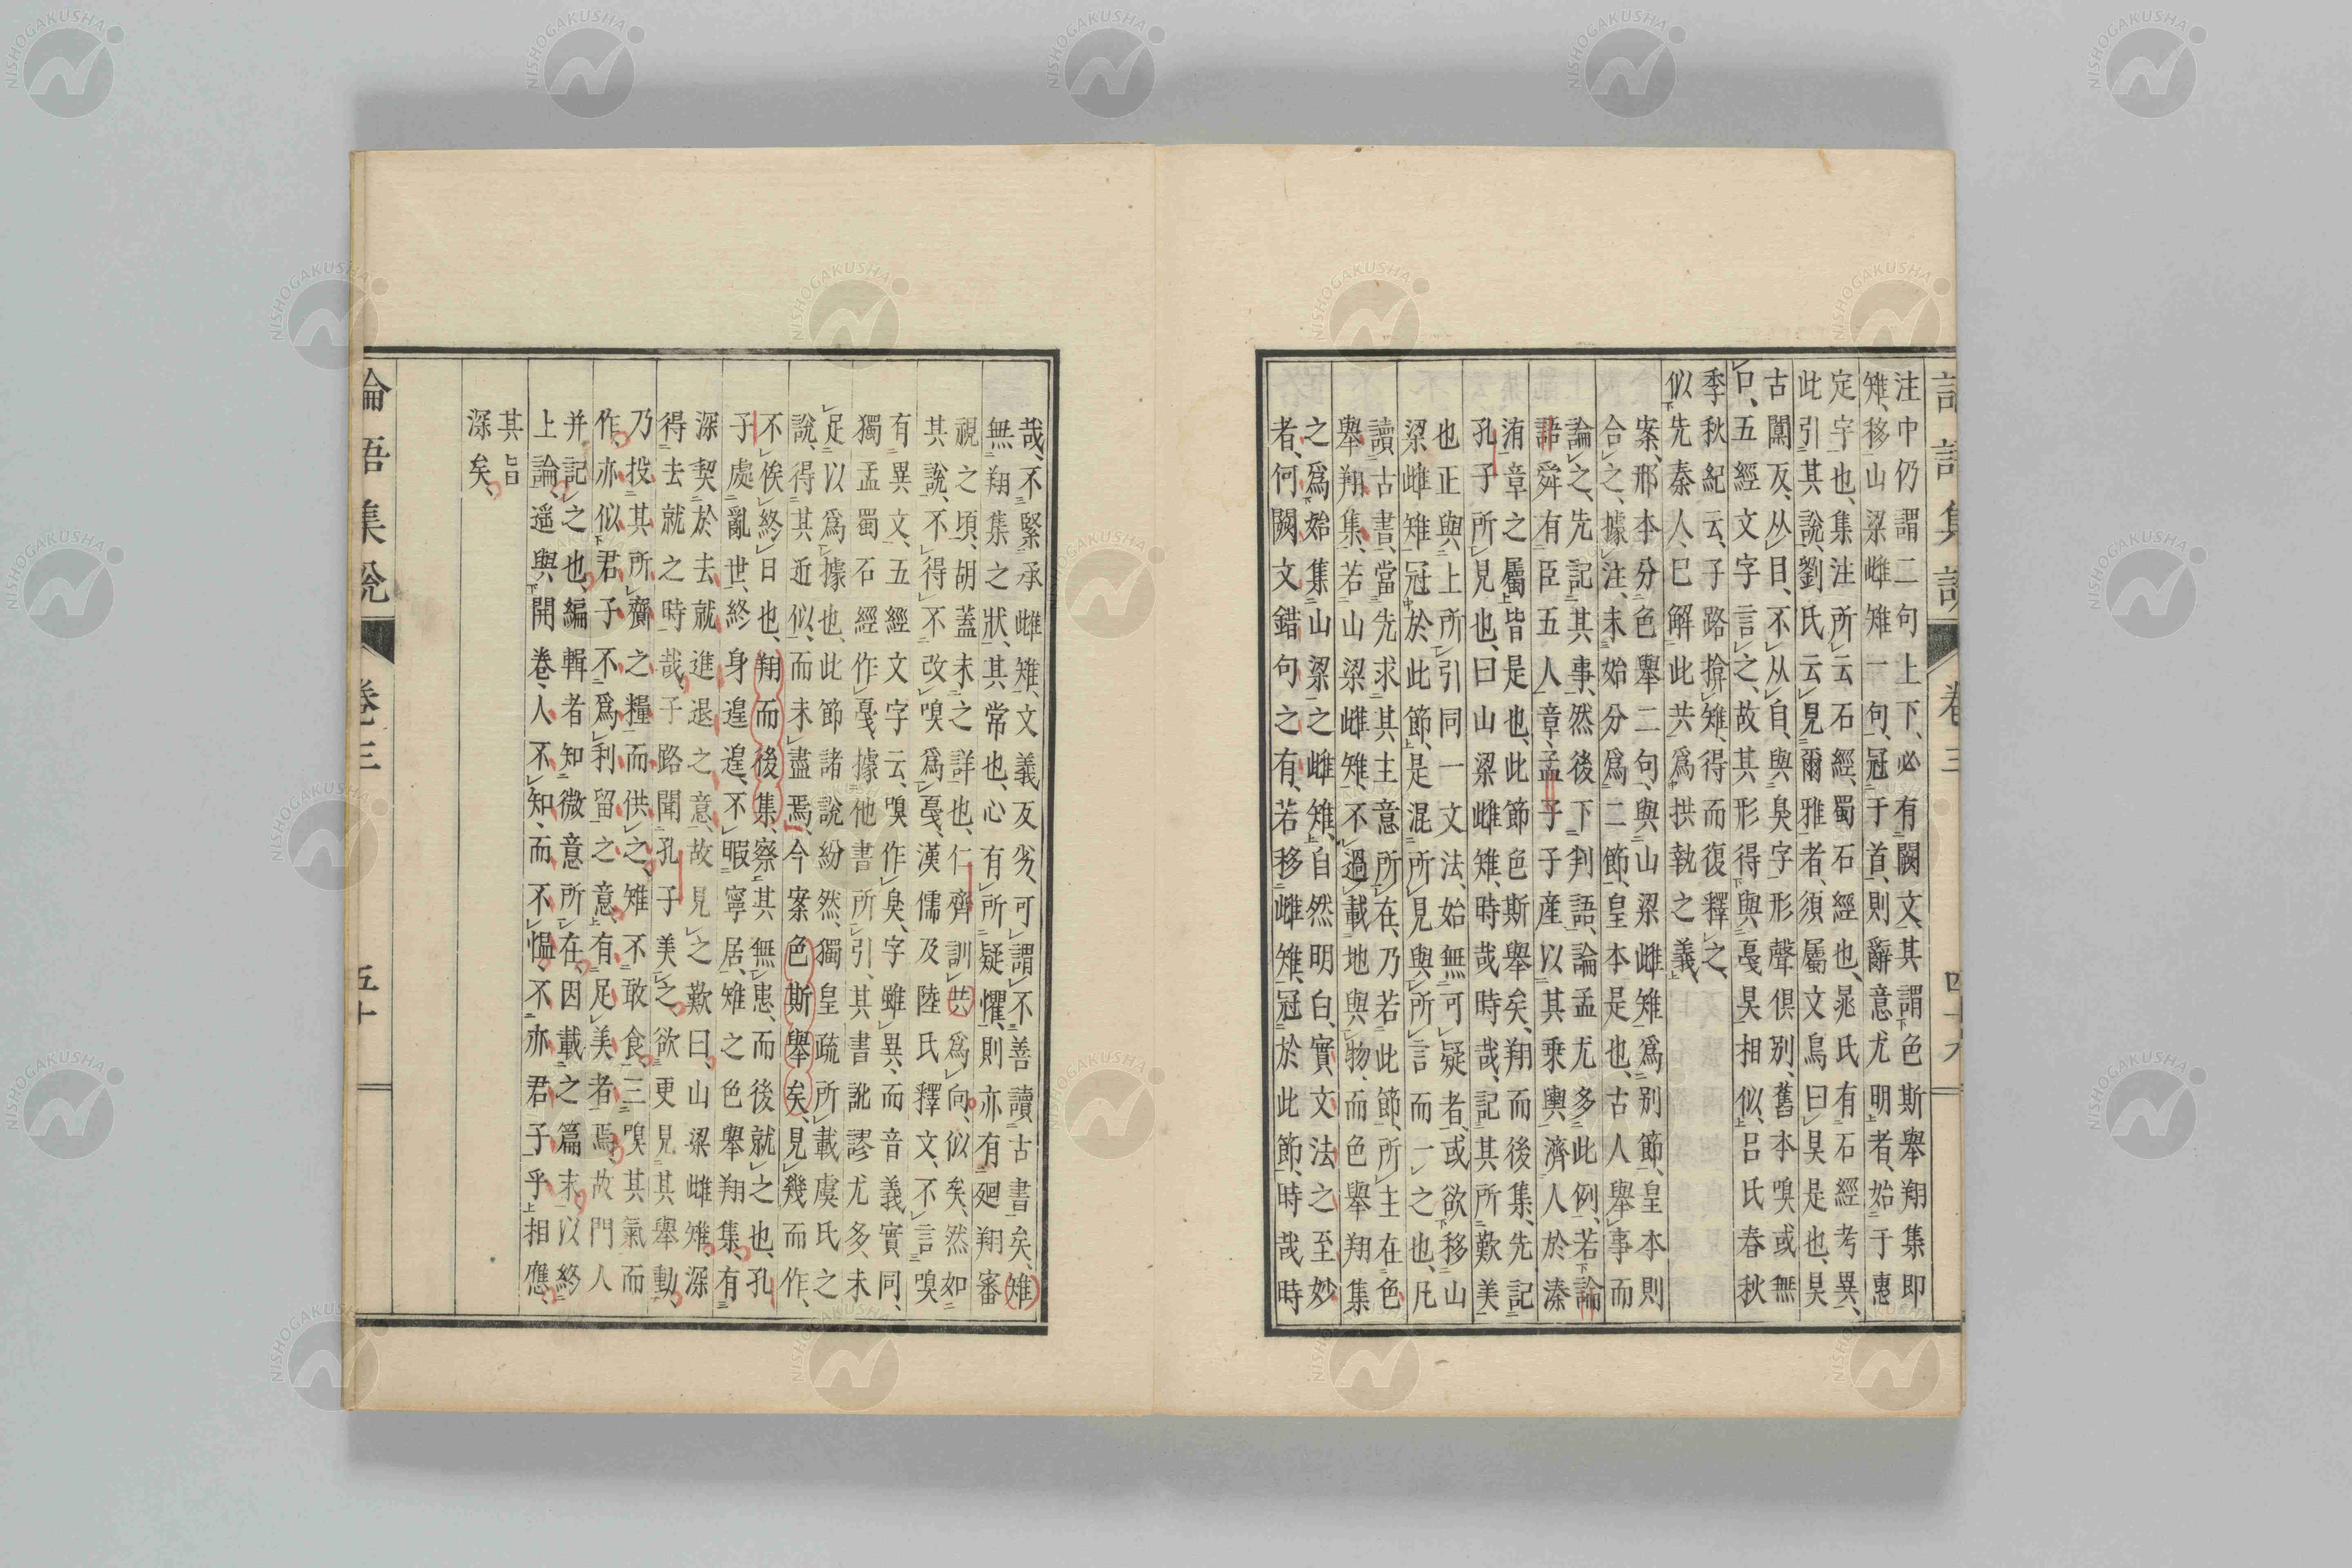 注中仍謂二句上下、必有闕文、其謂色斯舉翔集即
雉、移山梁雌雉一句、冠于首、則辭意尤明者、始于惠
定宇也、集注所云石經、蜀石經也、晁氏有石經考異、
此引其說、劉氏云見爾雅者、須屬文鳥曰昊是也、昊
古闃反、从目、不从自、與臭字形聲倶別、舊本嗅或無
口、五經文字言之、故其形得與戛昊相似、呂氏春秋
季秋紀云、子路揜雉、得而復釋之、
似先秦人、已解此共爲拱執之義、
案、邢本分色舉二句、與山梁雌雉爲別節、皇本則
合之、據注、未始分爲二節、皇本是也、古人舉事而
論之、先記其事、然後下判語、論孟尤多此例、若論
語舜有臣五人章、孟子子產以其乘輿濟人於溱
洧章之屬皆是也、此節色斯舉矣、翔而後集、先記
孔子所見也、曰山梁雌雉、時哉時哉、記其所歎美
也、正與上所引同一文法、始無可疑者、或欲移山
梁雌雉冠於此節、是混所見與所言而一之也、凡
讀古書、當先求其主意所在、乃若此節、所主在色
舉翔集、若山梁雌雉、不過載地與物、而色舉翔集
之爲始集山梁之雌雉、自然明白、實文法之至妙
者、何闕文錯句之有、若移雌雉、冠於此節、時哉時
哉、不緊承雌雉、文義反劣、可謂不善讀古書矣、雉
無翔集之狀、其常也、心有所疑懼、則亦有廻翔審
視之頃、胡蓋未之詳也、仁齊訓共爲向、似矣、然如
其說、不得不改嗅爲戛、漢儒及陸氏釋文、不言嗅
有異文、五經文字云、嗅作臭、字雖異、而音義實同、
獨孟蜀石經作戛、據他書所引、其書訛謬尤多、未
足以爲據也、此節諸說紛然、獨皇疏所載虞氏之
說、得其近似、而未盡焉、今案色斯舉矣、見幾而作、
不俟終日也、翔而後集、察其無患、而後就之也、孔
子處亂世、終身遑遑、不暇寧居、雉之色舉翔集、有
深契於去就進退之意、故見之歎曰、山梁雌雉、深
得去就之時哉、子路聞孔子美之、欲更見其舉動、
乃投其所齎之糧、而供之、雉不敢食、三嗅其氣而
作、亦似君子不爲利留之意、有足美者焉、故門人
并記之也、編輯者知微意所在、因載之篇末、以終
上論、遥與開卷、人不知、而不慍、不亦君子乎相應、
其旨
深矣、
論語集說
卷三
五十